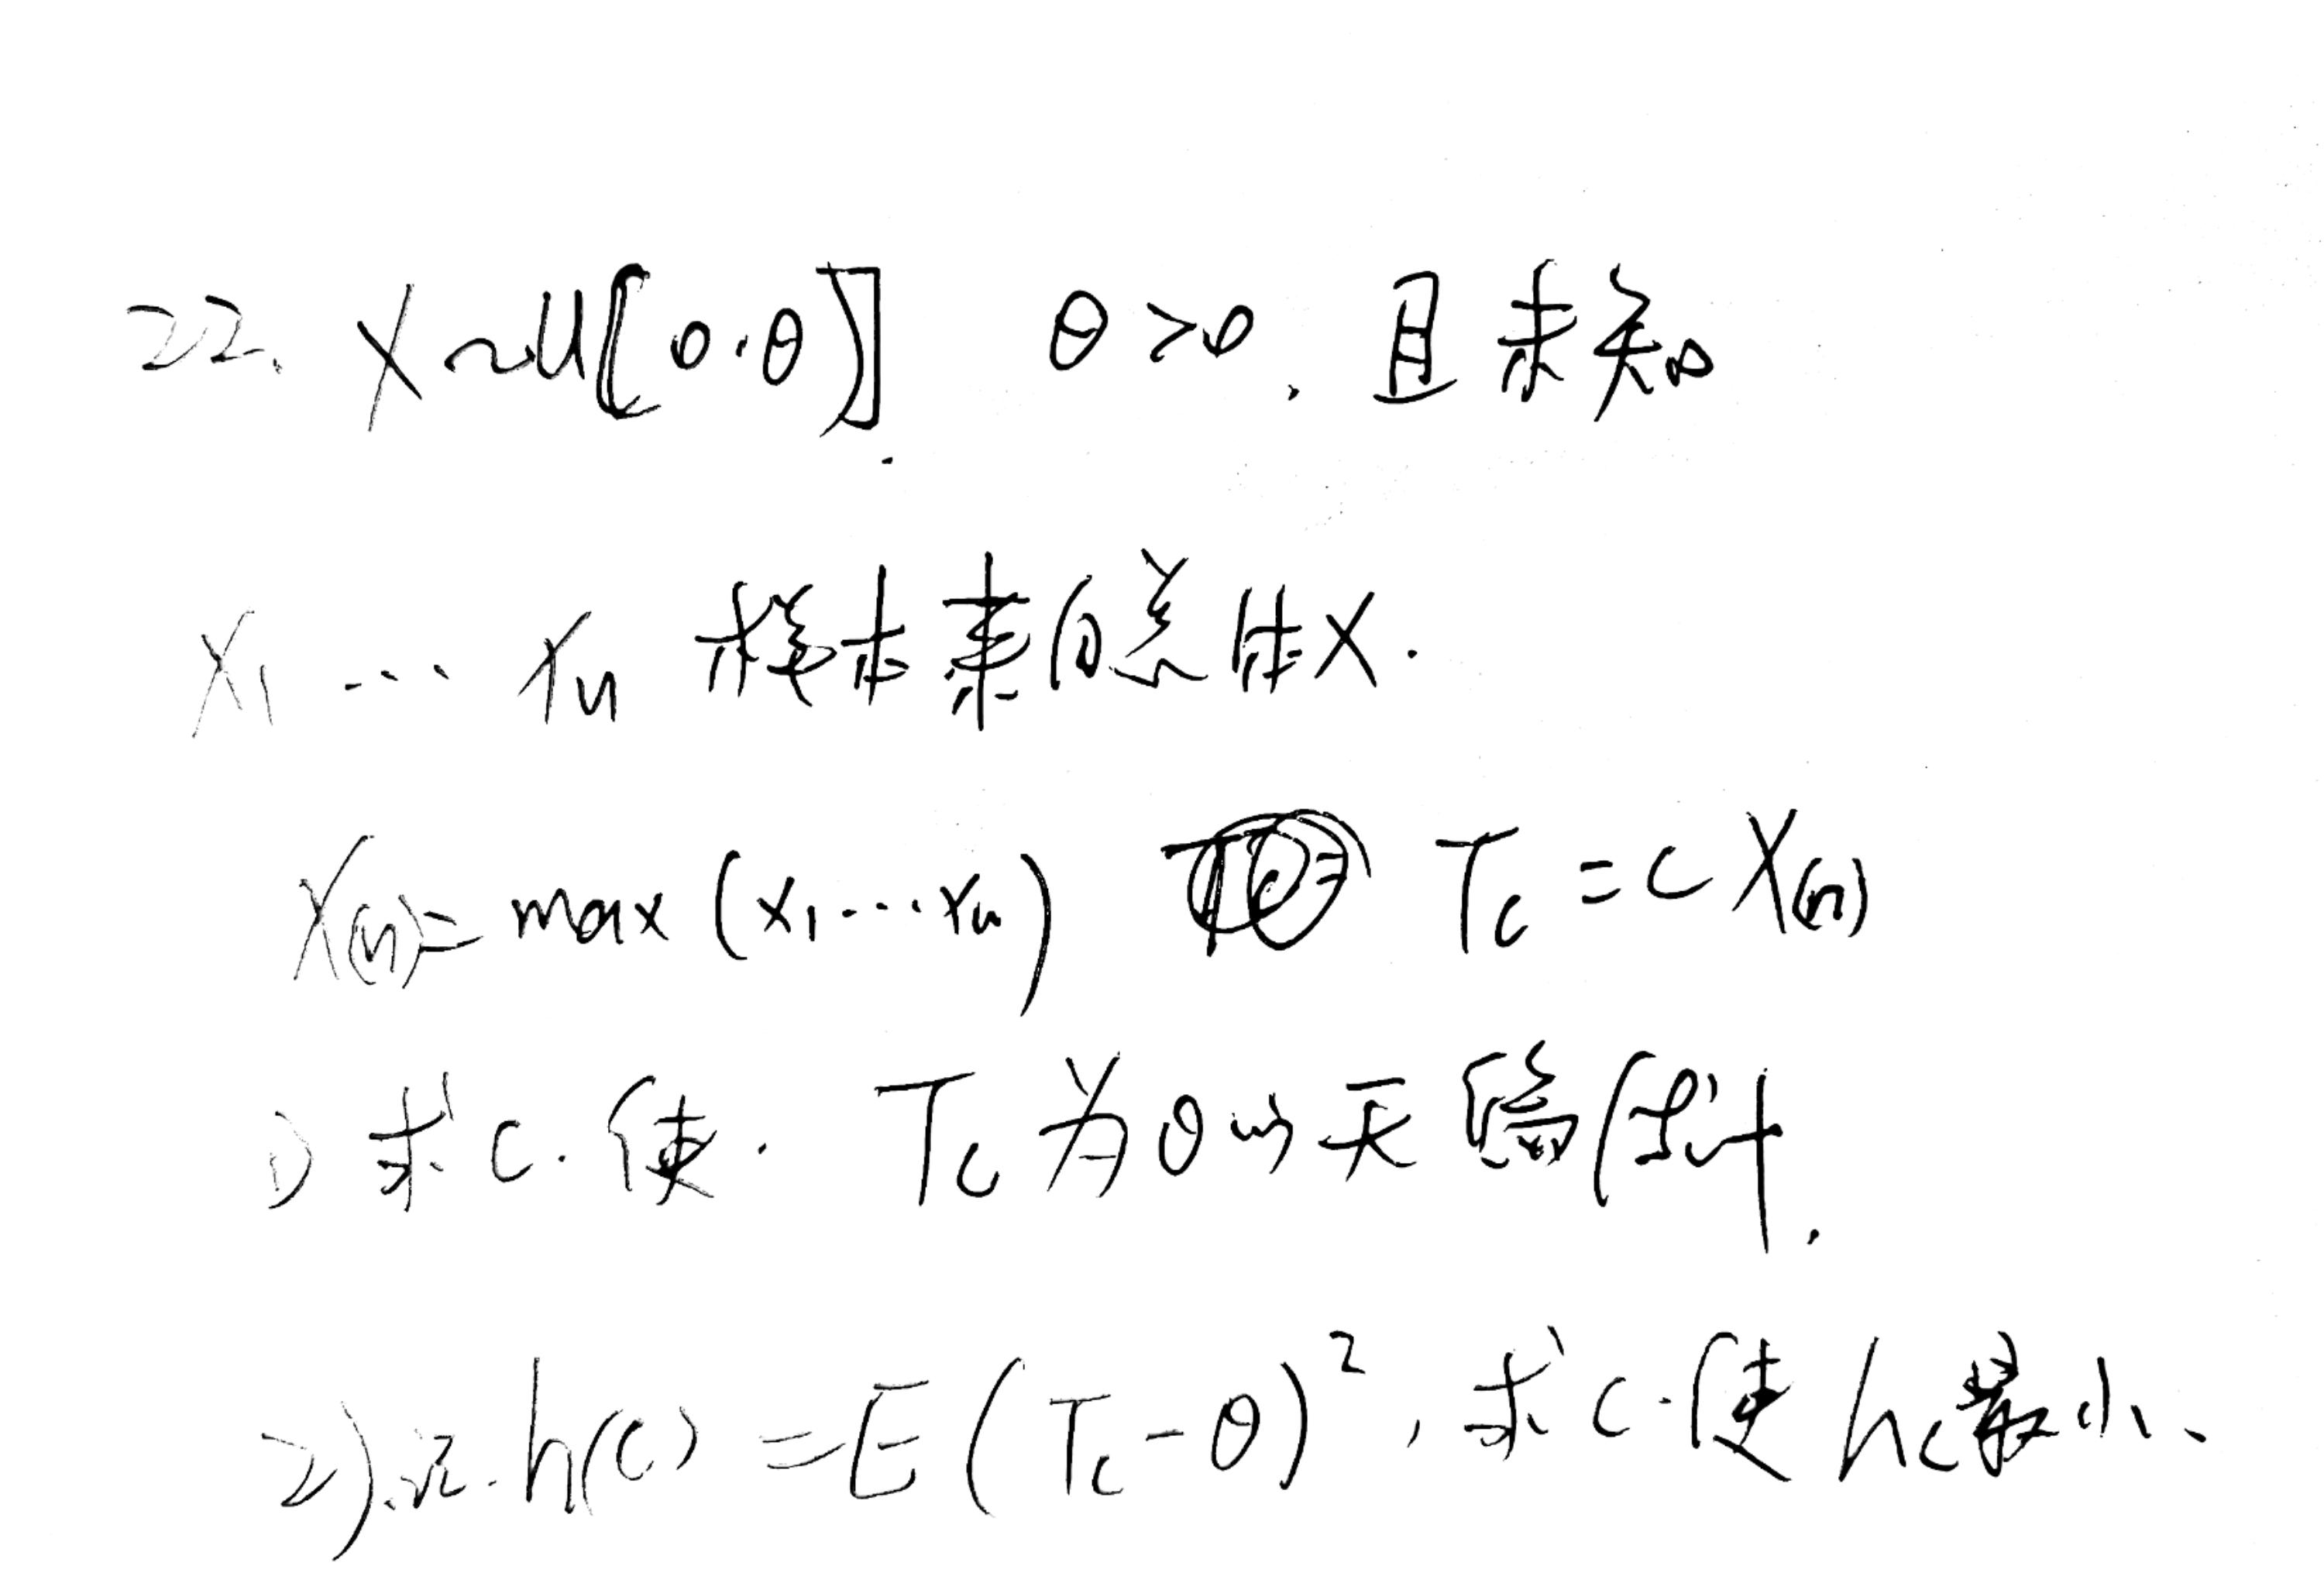 22. X~U[0,θ] θ>0, 且未知
X₁…Xₙ 样本来自总体X.
X₍ₙ₎=max(X₁…Xₙ) T_c=cX₍ₙ₎
1)求c.使. T_c为θ的无偏估计.
2).记.h(c)=E(T_c-θ)²,求c.使h_c最小、